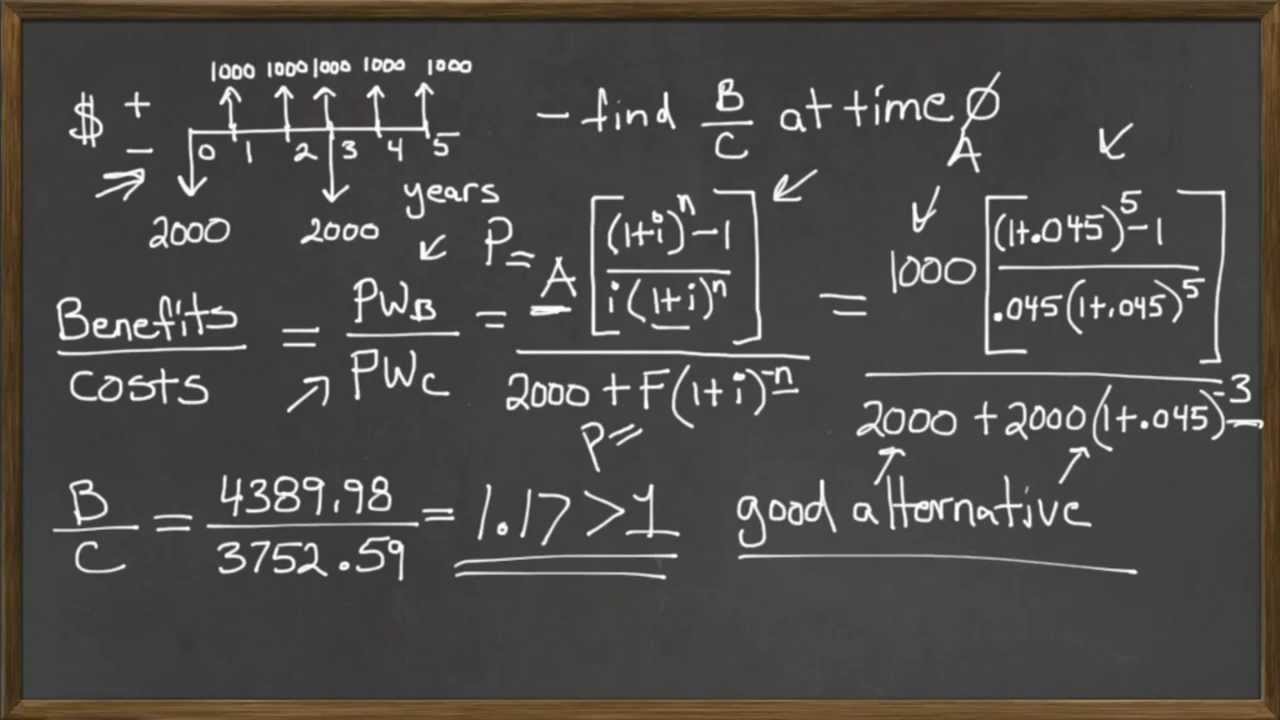 1000 1000 1000 1000 1000
$ + -
0 1 2 3 4 5
years
2000 2000
- find B/C at time 0
A
Benefits/costs = PWB/PWC = P= A[((1+i)^n - 1)/(i(1+i)^n)] / (2000 + F(1+i)^-n) = 1000[((1+.045)^5 - 1)/(.045(1+.045)^5)] / (2000 + 2000(1+.045)^-3)
P=
B/C = 4389.98/3752.59 = 1.17 > 1 good alternative